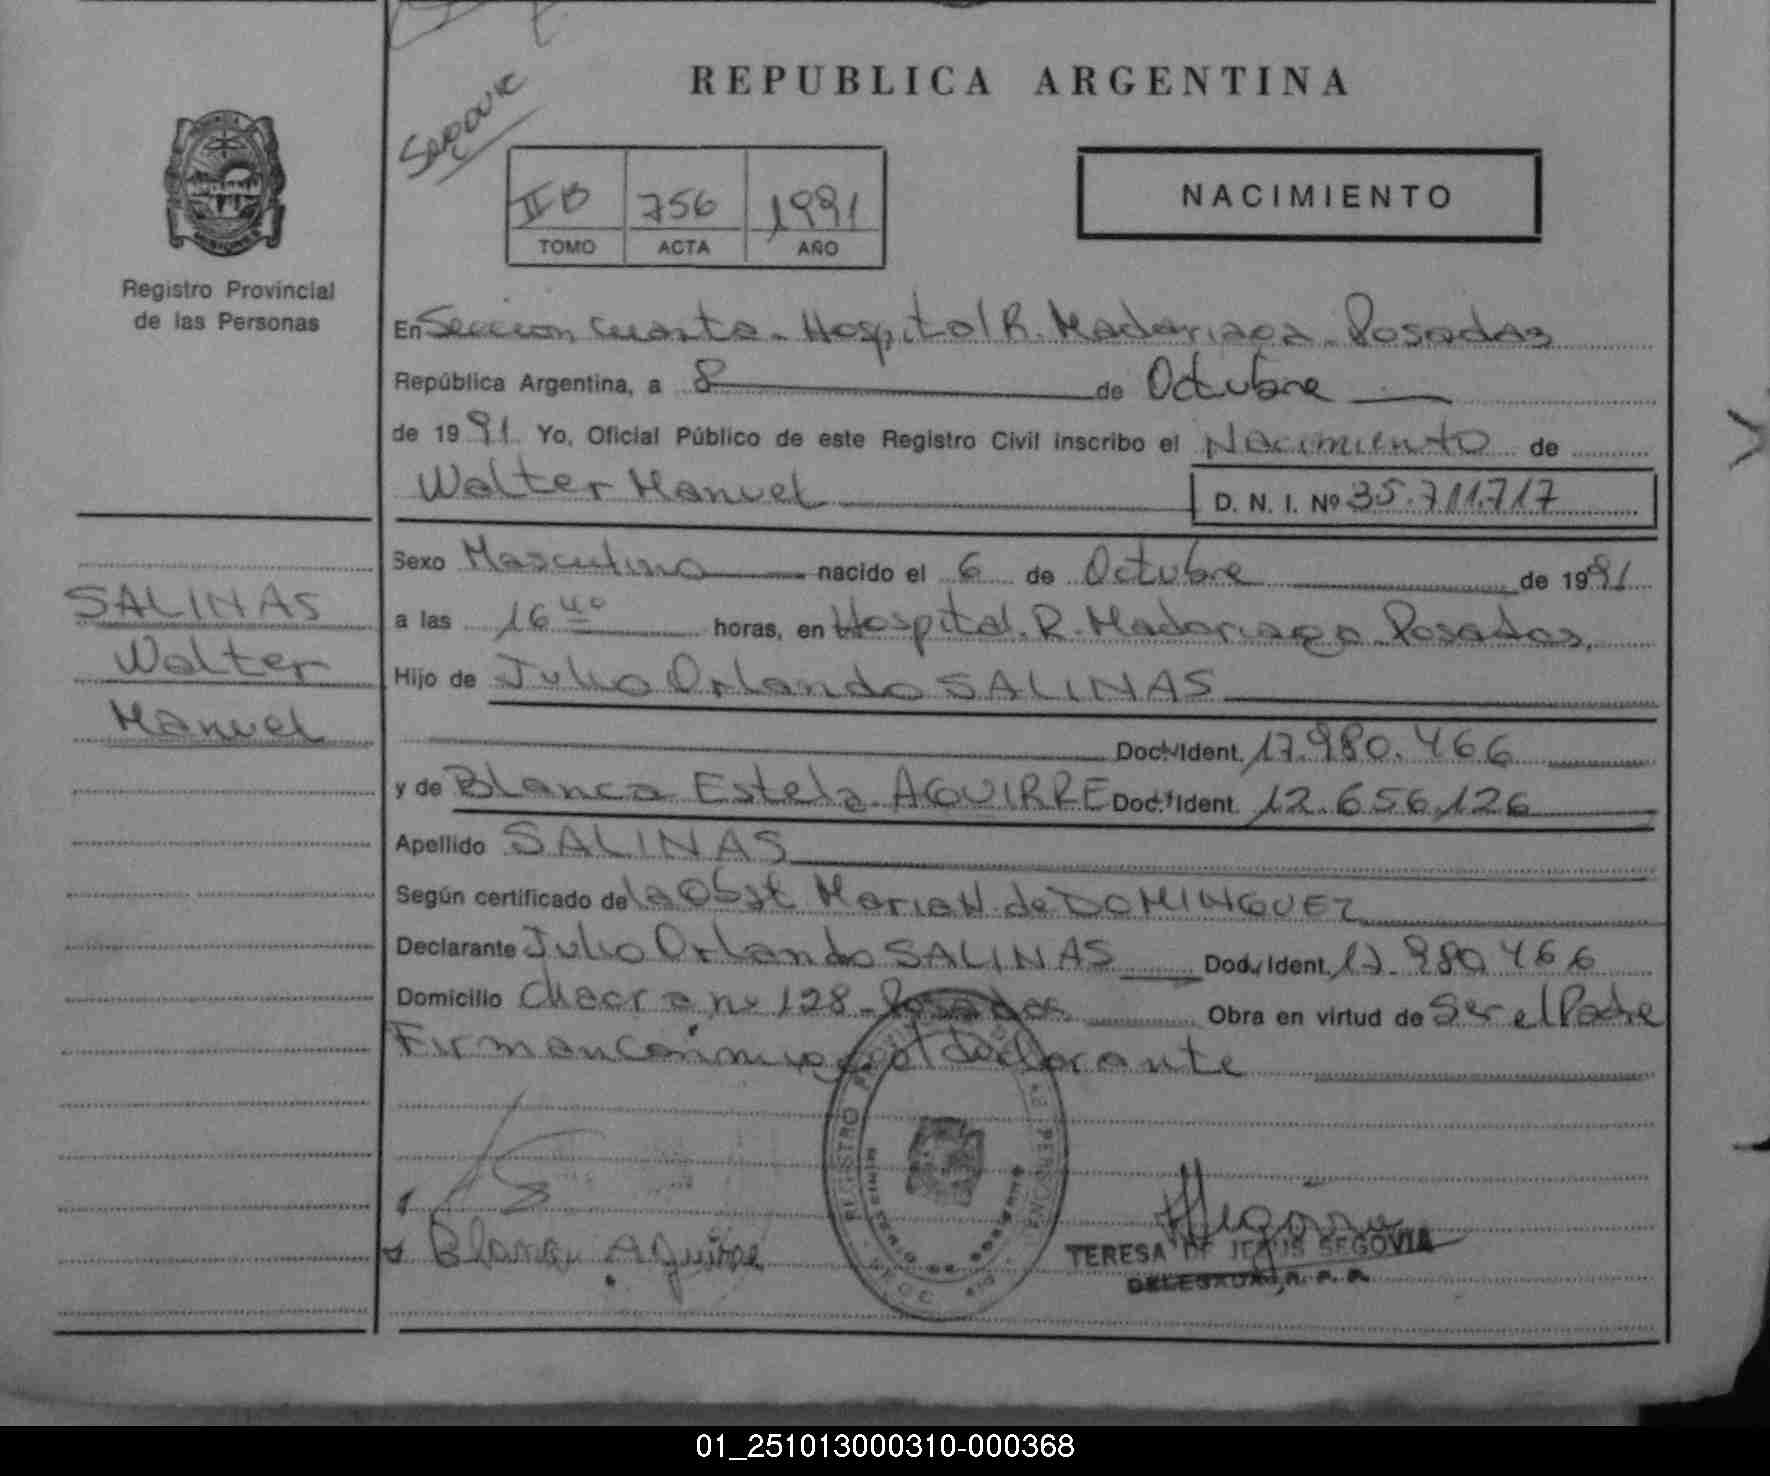 REPUBLICA ARGENTINA
II B 756 1991
TOMO ACTA AÑO
NACIMIENTO
Registro Provincial
de las Personas
En Seccion Cuarta - Hospital R. Madariaga - Posadas
República Argentina, a 8 de Octubre
de 1991 Yo, Oficial Público de este Registro Civil inscribo el Nacimiento de
Walter Manuel D. N. I. Nº 35.711.717
Sexo Masculino nacido el 6 de Octubre de 1991
a las 16 40 horas, en Hospital. R. Madariaga Posadas,
Hijo de Julio Orlando SALINAS
Doc. Ident. 17.980.466
y de Blanca Estela AGUIRRE Doc. Ident. 12.656.126
Apellido SALINAS
Según certificado de la Obst Maria N. de DOMINGUEZ
Declarante Julio Orlando SALINAS Doc. Ident. 17.980.466
Domicilio Chacra nº 128 - Posadas Obra en virtud de Ser el Padre
Firman conmigo el declarante
SALINAS
Walter
Manuel
Blanca Aguirre
REGISTRO PERSONAS
TERESA DE JESUS SEGOVIA
01_251013000310-000368